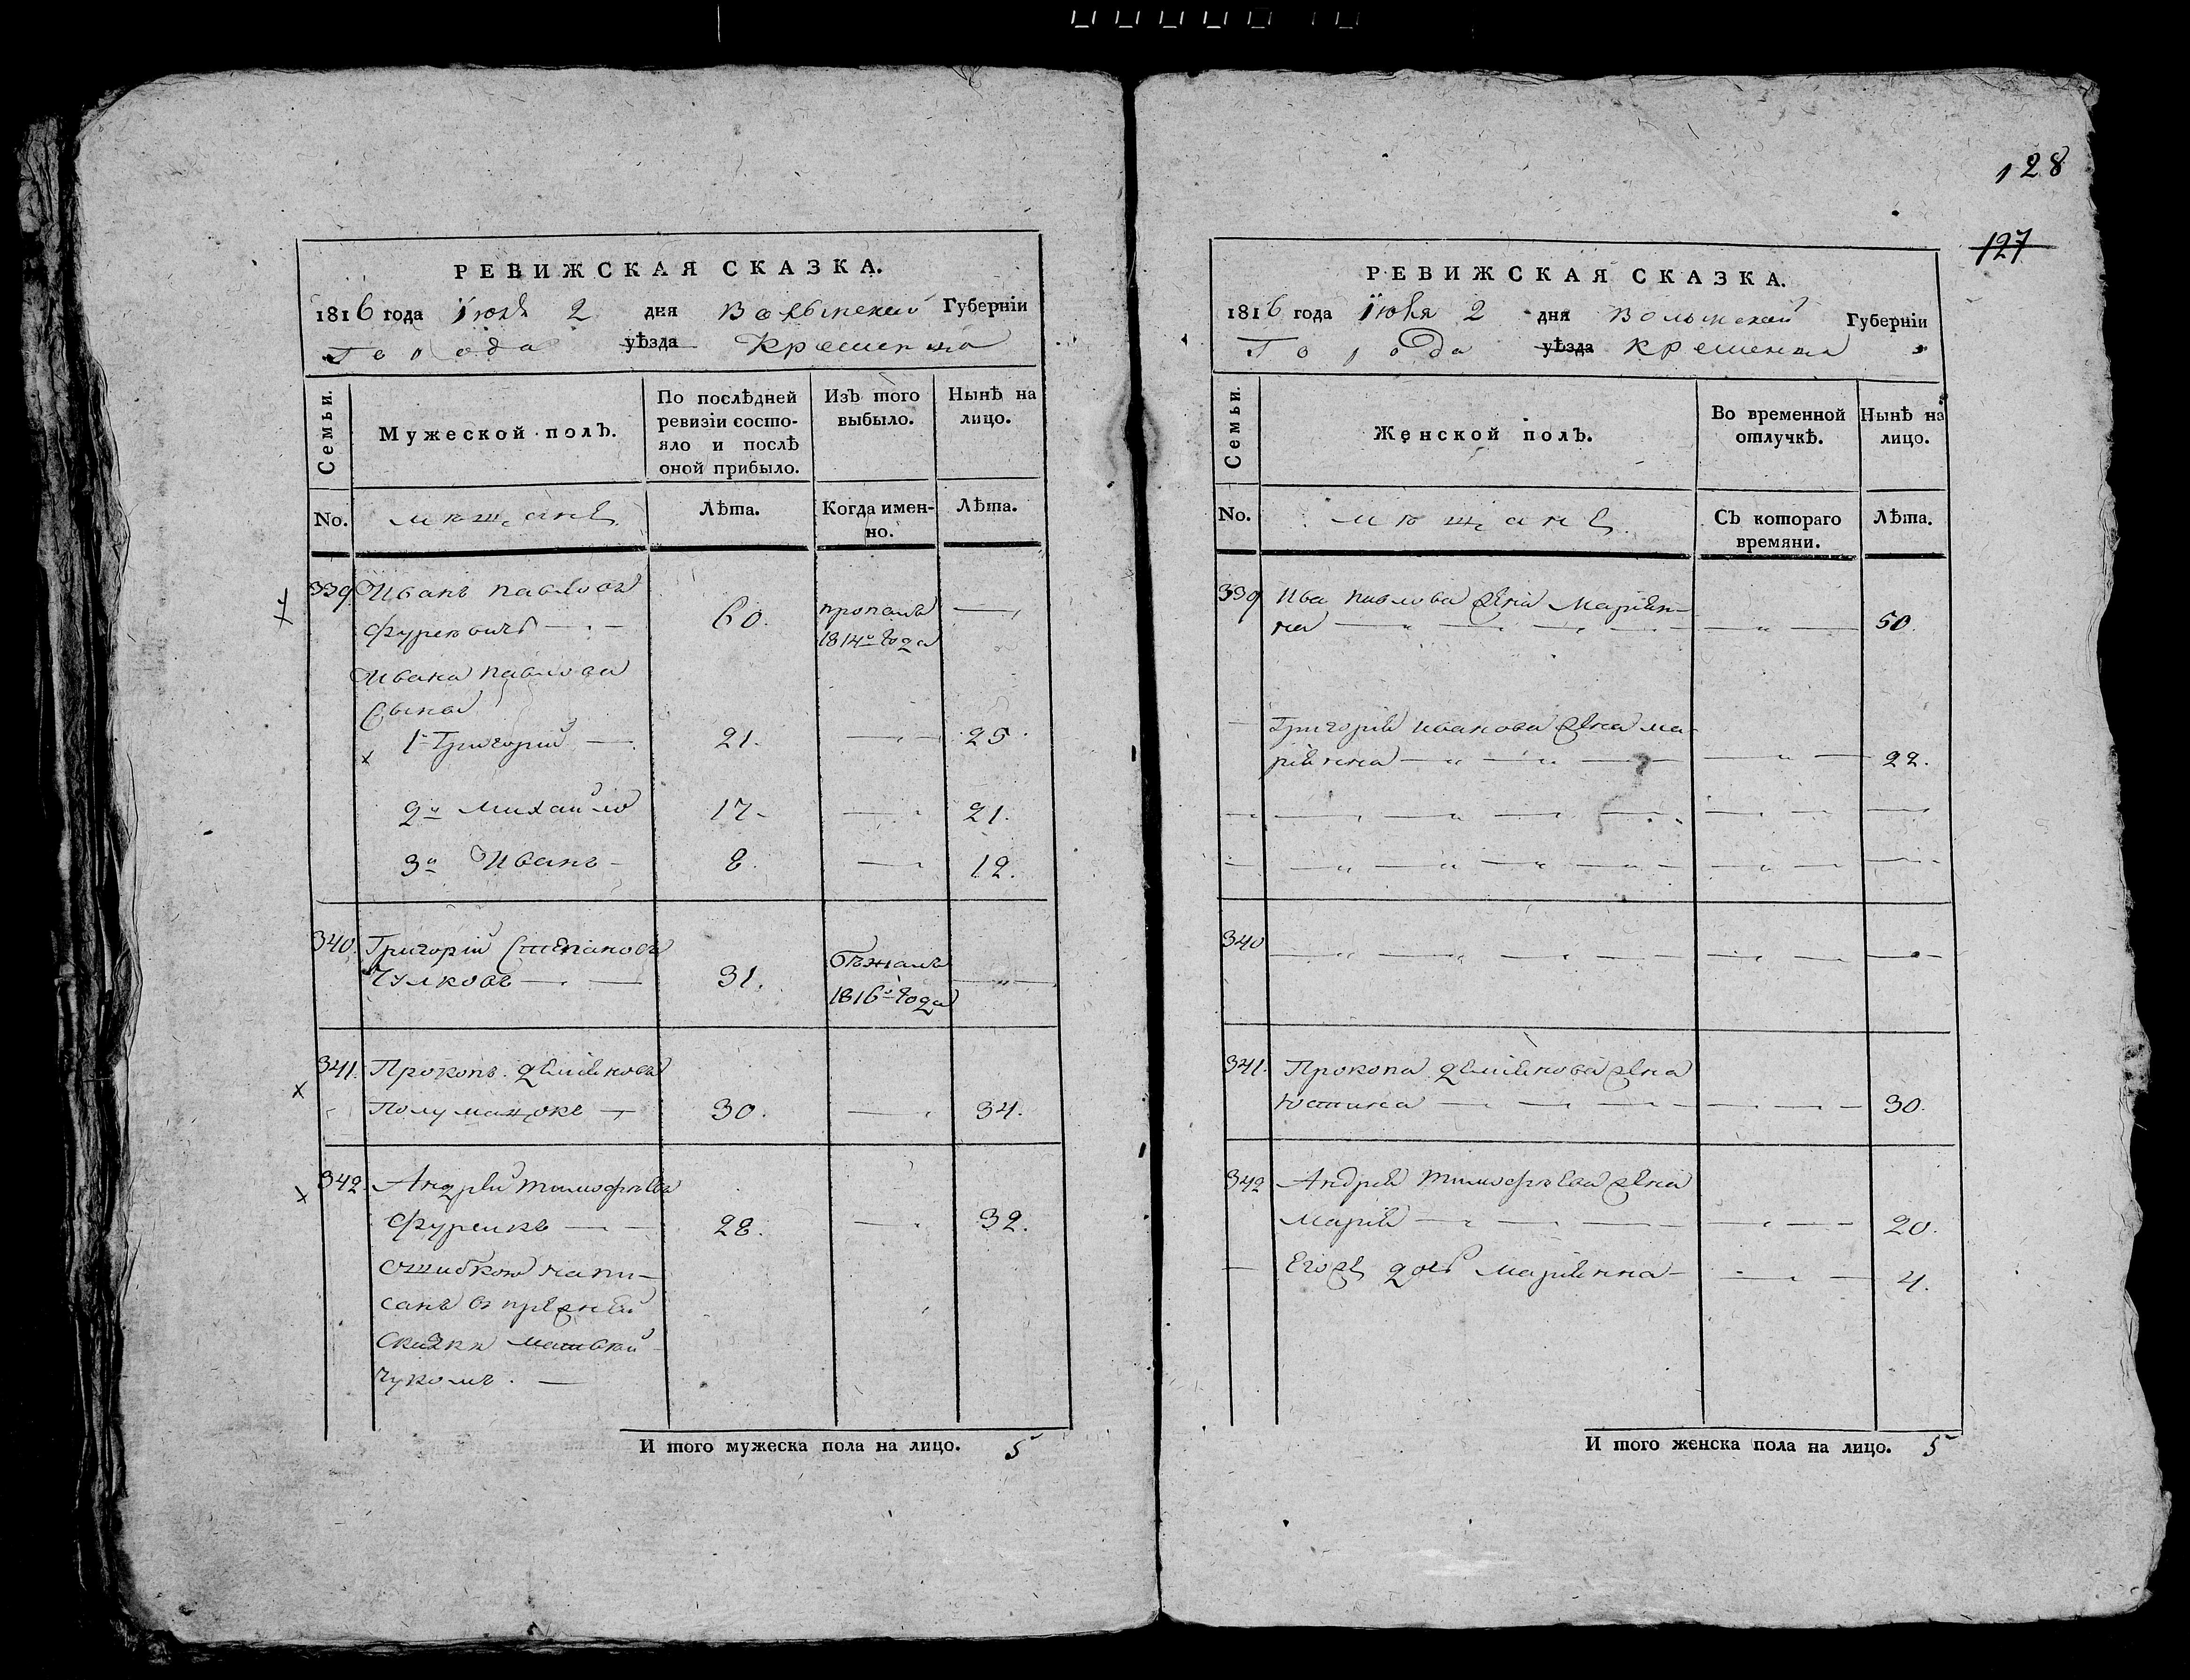 128
127
РЕВИЖСКАЯ СКАЗКА.
1816 года Iюля 2 дня Волынской Губерніи
Города уѣзда Кременца
Семьи.
Мужеской полъ.
По послѣдней ревизіи состояло и послѣ оной прибыло.
Изъ того выбыло.
Нынѣ на лицо.
No.
мѣщанѣ
Лѣта.
Когда именно.
Лѣта.
339 Иванъ Павловъ
60. пропалъ
1814го года
Ивана Павлова
Сыны
1й Григорий 21. 25.
2й Михайло 17. 21.
3й Иванъ 8. 12.
340. Григорій Степановъ
Чулковъ 31. бѣжалъ
1816го года
341. Прокопъ
30. 34.
342. Андрей Тимофѣевъ
Фурсикъ 28. 32.
Ошибкою напи-
санъ в прежней
Сказки Матвей
Чукомъ.
И того мужеска пола на лицо. 5
РЕВИЖСКАЯ СКАЗКА.
1816 года Iюля 2 дня Волынской Губерніи
Города уѣзда Кременца
Семьи.
Женской полъ.
Во временной отлучкѣ.
Нынѣ на лицо.
No.
мѣщанѣ
Съ котораго времяни.
Лѣта.
339 Ива Павлова жена Марьян-
на 50.
Григорія Иванова жена Ма-
рiянна 22.
340
341. Прокопа жена
Юстина 30.
342 Андрея Тимофѣева жена
Марія 20.
Его же дочь Маріянна 4.
И того женска пола на лицо. 5